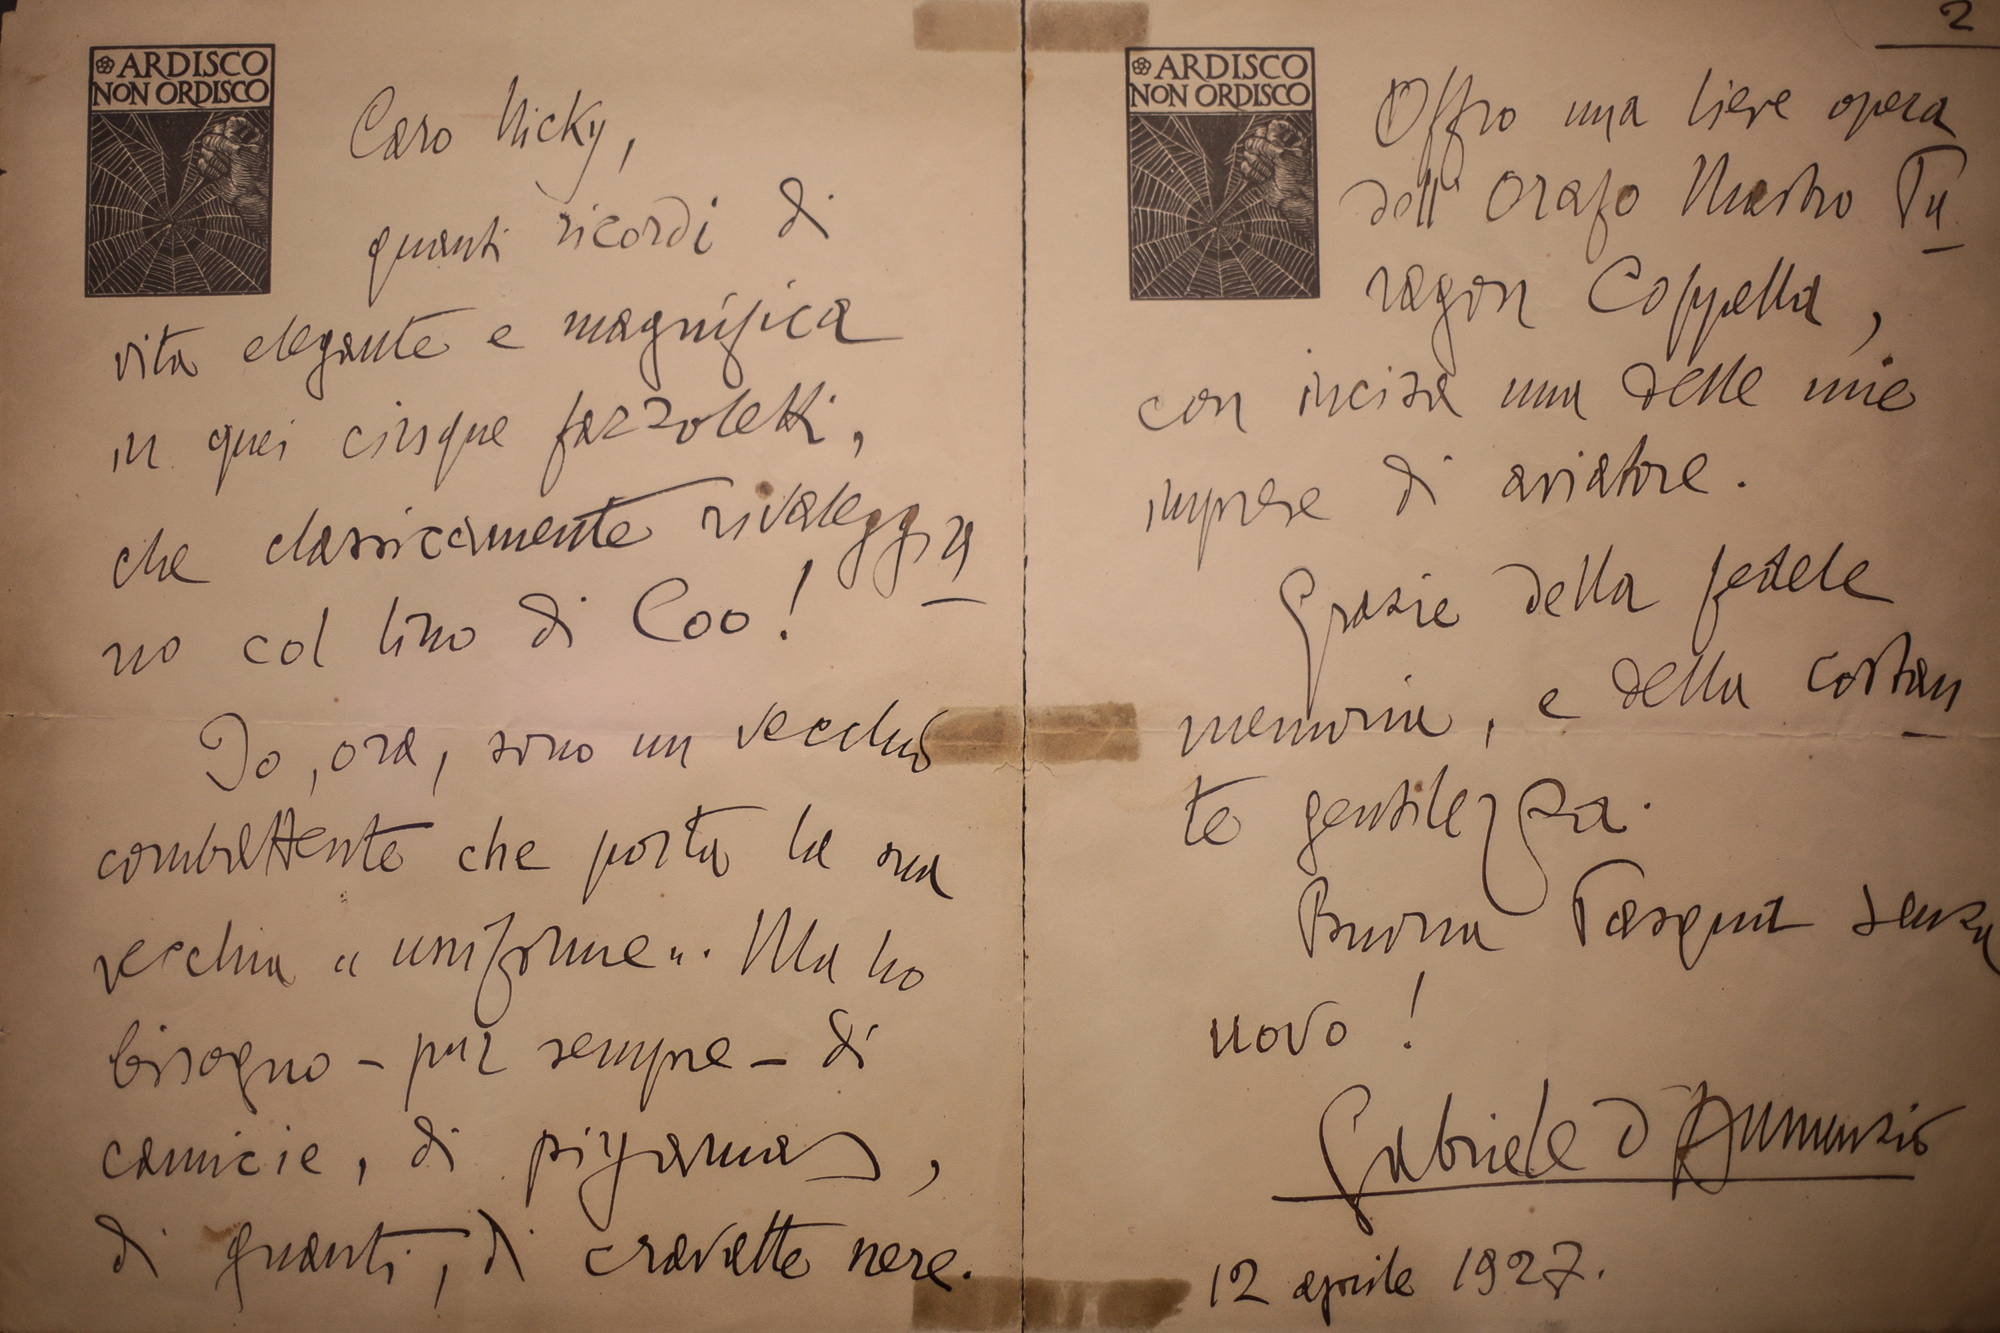 ARDISCO
NON ORDISCO
Caro Nicky,
quanti ricordi di
vita elegante e magnifica
in quei cinque fazzoletti,
che classicamente rivaleggia
no col lino di Coo!
Io, ora, sono un vecchio
combattente che porta la sua
vecchia "uniforme". Ma ho
bisogno – pur sempre – di
camicie, di pigiamas,
di guanti, di cravatte nere.
2
ARDISCO
NON ORDISCO
Offro una lieve opera
dell'Orafo Mastro Pa
ragon Coppella,
con incisa una delle mie
imprese di aviatore.
Grazie della fedele
memoria, e della costan
te gentilezza.
Buona Pasqua senza
uovo!
Gabriele d'Annunzio
12 aprile 1927.